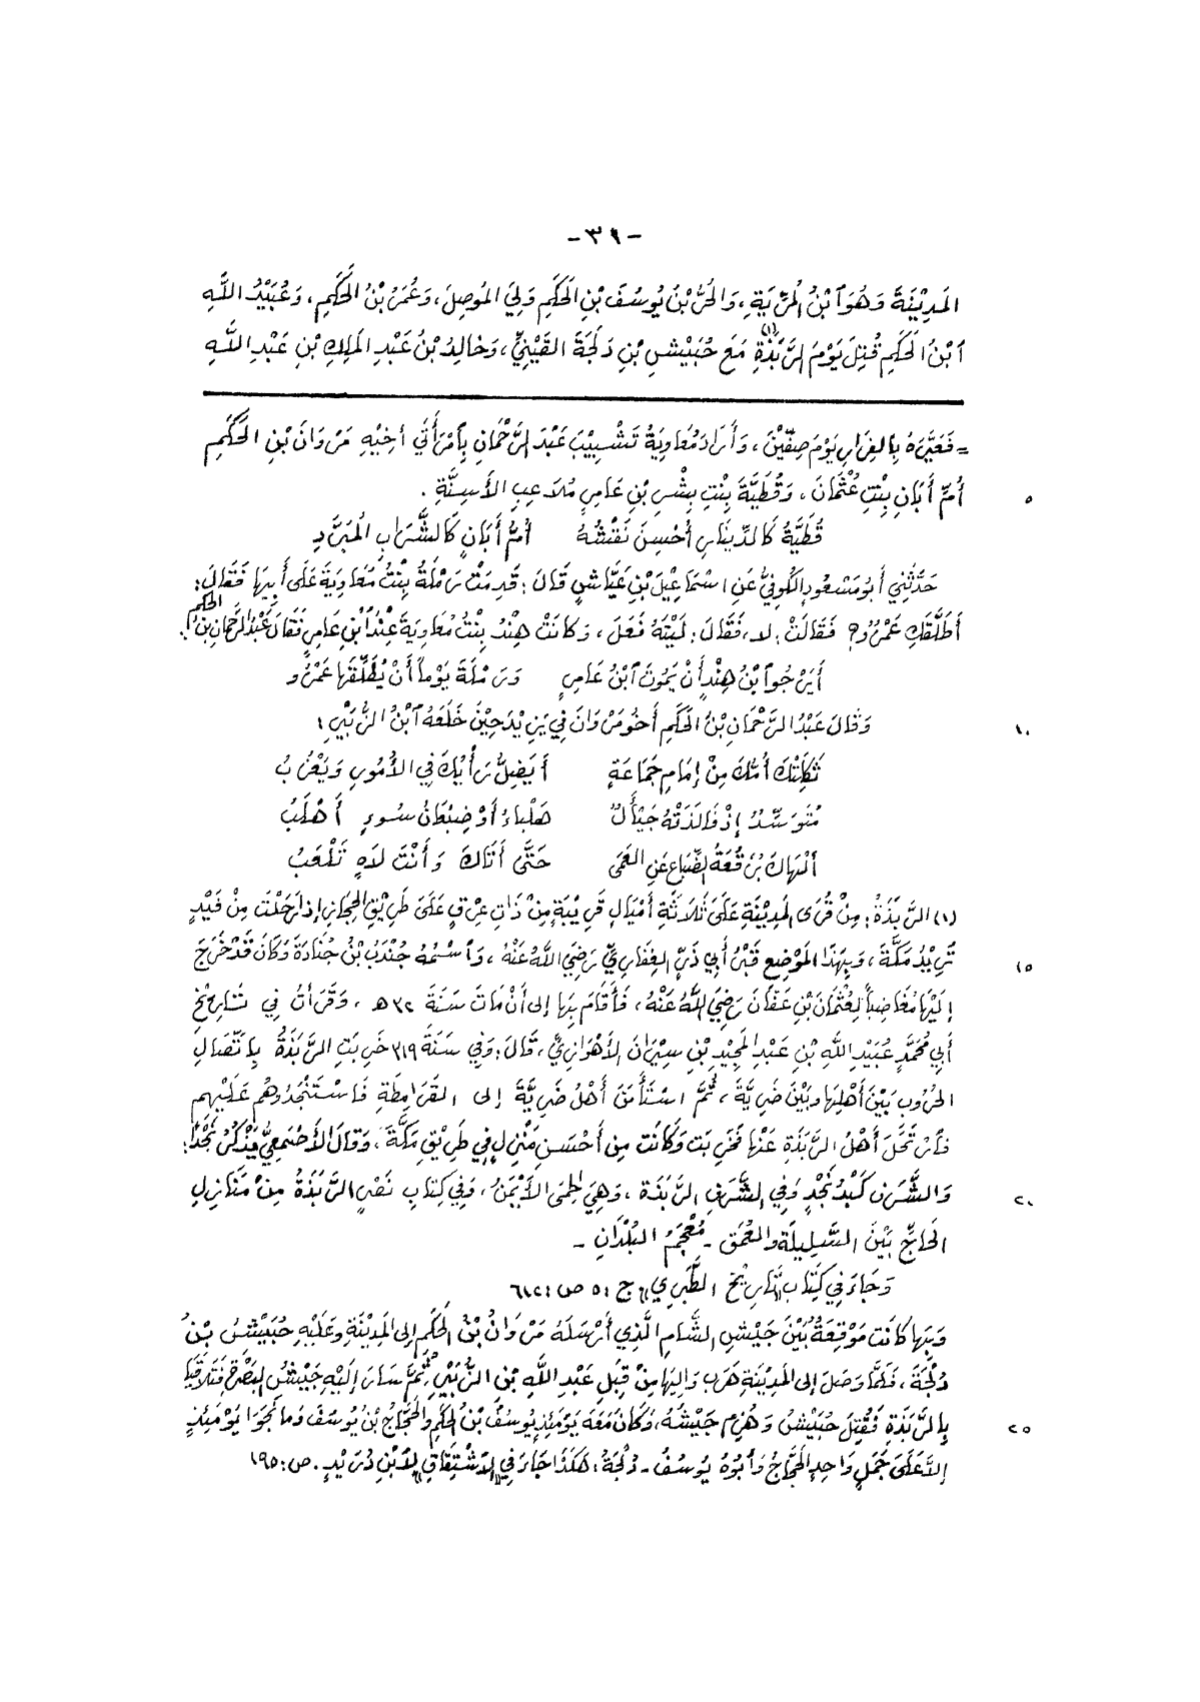 -٣٩-
المَدِيْنَةَ وَهُوَ ٱبْنُ المُرِّيَّةِ، وَالحُرُّ بْنُ يُوسُفَ بْنِ الحَكَمِ وَلِيَ المُوصِلَ، وَعُمَرُ بْنُ الحَكَمِ، وَعُبَيْدُ اللَّهِ
ٱبْنُ الحَكَمِ قُتِلَ يَوْمَ الرَّبَذَةِ (١) مَعَ حُبَيْشِ بْنِ دَلَجَةَ القَيْنِيِّ، وَخَالِدُ بْنُ عَبْدِ المَلِكِ بْنِ عَبْدِ اللَّهِ
= فَعَيَّرَهُ بِالفِرَارِ يَوْمَ صِفِّيْنَ، وَأَرَادَ مُعَاوِيَةُ تَشْبِيْبَ عَبْدِ الرَّحْمَانِ بِٱمْرَأَتَي أَخِيْهِ مَرْوَانَ بْنِ الحَكَمِ
أُمِّ أَبَانِ بِنْتِ عُثْمَانَ، وَقُطَيَّةَ بِنْتِ بِشْرِ بْنِ عَامِرٍ مُلَاعِبِ الأَسِنَّةِ. ٥
قُطَيَّةُ كَالدِّيْنَارِ أُحْسِنَ نَقْشُهُ أُمُّ أَبَانٍ كَالشَّرَابِ المُبَرَّدِ
حَدَّثَنِي أَبُو مَسْعُودٍ الكُوفِيُّ عَنِ اسْمَاعِيْلَ بْنِ عَيَّاشٍ قَالَ: قَدِمَتْ رَمْلَةُ بِنْتُ مُعَاوِيَةَ عَلَى أَبِيْهَا فَقَالَ:
أَطَلَّقَكِ عَمْرٌو؟ فَقَالَتْ: لا، فَقَالَ: لَيْتَهُ فَعَلَ، وَكَانَتْ هِنْدُ بِنْتُ مُعَاوِيَةَ عِنْدَ ٱبْنِ عَامِرٍ فَقَالَ عَبْدُ الرَّحْمَانِ بْنُ الحَكَمِ:
أَيَرْجُو ٱبْنُ هِنْدٍ أَنْ يَمُوتَ ٱبْنُ عَامِرٍ وَرَمْلَةَ يَوْماً أَنْ يُطَلِّقَهَا عَمْرُو
وَقَالَ عَبْدُ الرَّحْمَانِ بْنُ الحَكَمِ أَخُو مَرْوَانَ فِي يَزِيْدَ حِيْنَ خَلَعَهُ ٱبْنُ الزُّبَيْرِ: ١٠
ثَكِلَتْكَ أُمُّكَ مِنْ إِمَامِ جَمَاعَةٍ أَيَضِلُّ رَأْيُكَ فِي الأُمُورِ وَيَعْزُبُ
مُتَوَسِّدُ إِذْ فَالَذَتْهُ جَيْأَلٌ هَلْبَاءُ أَوْ ضِبْعَانُ سُوءٍ أَهْلَبُ
أَلْهَاكَ بُزَقْعَةُ الضِّبَاعِ عَنِ العَمَى حَتَّى أَتَاكَ وَأَنْتَ لَاهٍ تَلْعَبُ
(١) الرَّبَذَةُ: مِنْ قُرَى المَدِيْنَةِ عَلَى ثَلَاثَةِ أَمْيَالٍ قَرِيْبَةٍ مِنْ ذَاتِ عِرْقٍ عَلَى طَرِيْقِ الحِجَازِ إِذَا رَحَلْتَ مِنْ فَيْدٍ
تُرِيْدُ مَكَّةَ، وَبِهَذَا المَوْضِعِ قَبْرُ أَبِي ذَرٍّ الغِفَارِيِّ رَضِيَ اللَّهُ عَنْهُ، وَٱسْمُهُ جُنْدَبُ بْنُ جُنَادَةَ وَكَانَ قَدْ خَرَجَ ١٥
إِلَيْهَا مُغَاضِباً لِعُثْمَانَ بْنِ عَفَّانَ رَضِيَ اللَّهُ عَنْهُ، فَأَقَامَ بِهَا إِلى أَنْ مَاتَ سَنَةَ ٣٢ هـ، وَقَرَأْتُ فِي تَارِيْخِ
أَبِي مُحَمَّدٍ عُبَيْدِ اللهِ بْنِ عَبْدِ المَجِيْدِ بْنِ سِيْرَانَ الأَهْوَازِيِّ، قَالَ: وَفِي سَنَةَ ٣١٩ خَرِبَتِ الرَّبَذَةُ بِٱتِّصَالِ
الحُرُوبِ بَيْنَ أَهْلِهَا وَبَيْنَ ضَرِيَّةَ، ثُمَّ اسْتَأْمَنَ أَهْلُ ضَرِيَّةَ إِلى القَرَامِطَةِ فَاسْتَنْجَدُوهُمْ عَلَيْهِم
فَٱرْتَحَلَ أَهْلُ الرَّبَذَةِ عَنْهَا فَخَرِبَتْ وَكَانَت مِن أَحْسَنِ مَنْزِلٍ فِي طَرِيْقِ مَكَّةَ، وَقَالَ الأَصْمَعِيُّ يَذْكُرُ نَجْداً:
وَالشَّرَفُ كَبْدُ نَجْدٍ وَفِي الشَّرَفِ الرَّبَذَة، وَهِيَ الحِمَى الأَيْمَنُ، وَفِي كِتَابِ نَصْرٍ الرَّبَذَةُ مِنْ مَنَازِلِ ٢٠
الحَاجِّ بَيْنَ السَّلِيلَةِ وَالعُمَقِ - مُعْجَمُ البُلْدَانِ -
وَجَاءَ فِي كِتَابِ تَارِيْخِ الطَّبَرِي، ج: ٥ ص: ٦١٢
وَبِهَا كَانَت مَوْقِعَةٌ بَيْنَ جَيْشِ الشَّامِ الَّذِي أَرْسَلَهُ مَرْوَانُ بْنُ الحَكَمِ إِلى المَدِيْنَةِ وَعَلَيْهِ حُبَيْشُ بْنُ
دُلْجَةَ، فَلَمَّا وَصَلَ إِلى المَدِيْنَةِ هَرَبَ وَالِيْهَا مِنْ قِبَلِ عَبْدِ اللَّهِ بْنِ الزُّبَيْرِ، ثُمَّ سَارَ إِلَيْهِ جَيْشُ البَصْرَةِ فَتَلَاقَيَا
بِالرَّبَذَةِ فَقُتِلَ حُبَيْشُ وَهُزِمَ جَيْشُهُ، وَكَانَ مَعَهُ يَوْمَئِذٍ يُوسُفُ بْنُ الحَكَمِ وَالحَجَّاجُ بْنُ يُوسُفَ وَمَا نَجَوَا يَوْمَئِذٍ ٢٥
إِلَّا عَلَى جَمَلٍ وَاحِدٍ الحَجَّاجُ وَأَبُوهُ يُوسُفُ - دُلْجَةُ: هَكَذَا جَاءَ فِي الاشْتِقَاقِ لِابْنِ دُرَيْدٍ. ص: ١٩٥